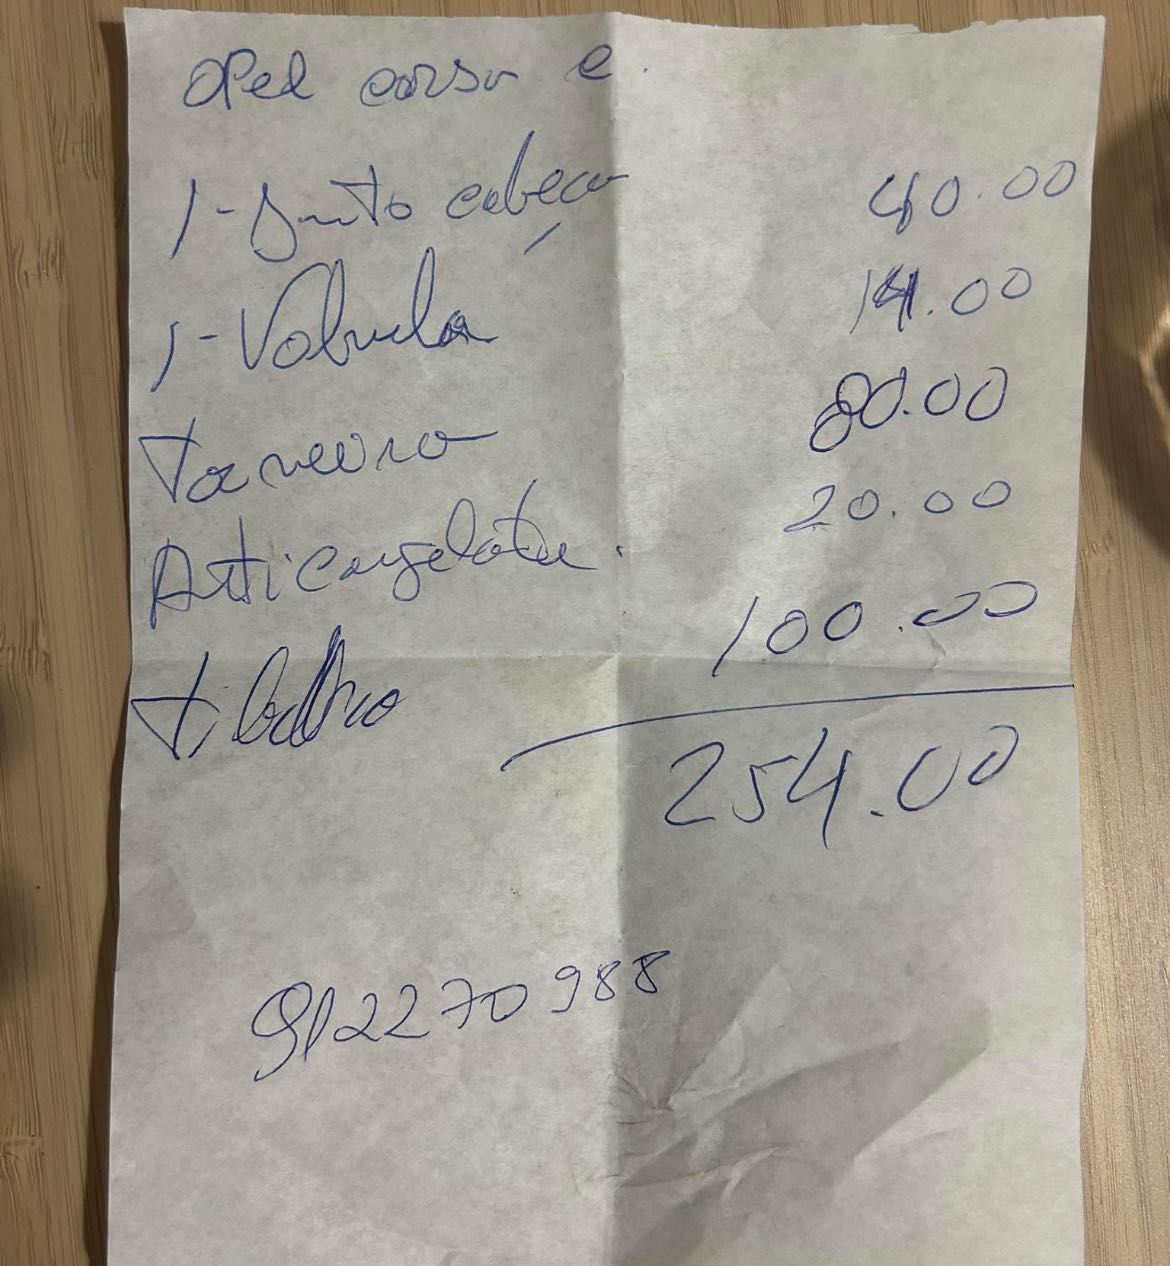 Opel corsa e.
1-Junto cabeça 40.00
1-Valvula 14.00
Torneiro 80.00
Anticongelate. 20.00
trabalho 100.00
254.00
912270988